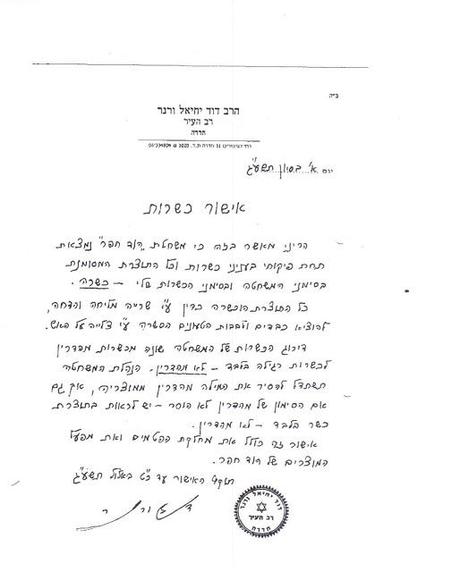 ב"ה
הרב דוד יחיאל ורנר
רב העיר
חדרה
יום א' בסיון תשע"ג
אישור כשרות
הריני מאשר בזה כי משחטת "הוד חפר" נמצאת
תחת פיקוחי בעניני כשרות וכל התוצרת המסומנת
בסימני המשחטה ובסימני הכשרות שלי – כשרה.
כל התוצרת הוכשרה כדין ע"י שרייה מליחה והדחה,
להוציא כבדים ולבבות הטעונים הכשרה ע"י צלייה על האש.
דירוג הכשרות של המשחטה שונה מכשרות מהדרין
לכשרות רגילה בלבד – לא מהדרין. הנהלת המשחטה
תשתדל להסיר את המילה מהדרין ממוצריה, אך גם
אם הסימון של מהדרין לא הוסר – יש לראות בתוצרת
כשר בלבד – לא מהדרין.
אישור זה כולל את מחלקת הפטמים ואת מפעל
המוצרים של הוד חפר.
תוקף האישור עד כ"ט באלול תשע"ג
דוד יחיאל ורנר
רב העיר
חדרה